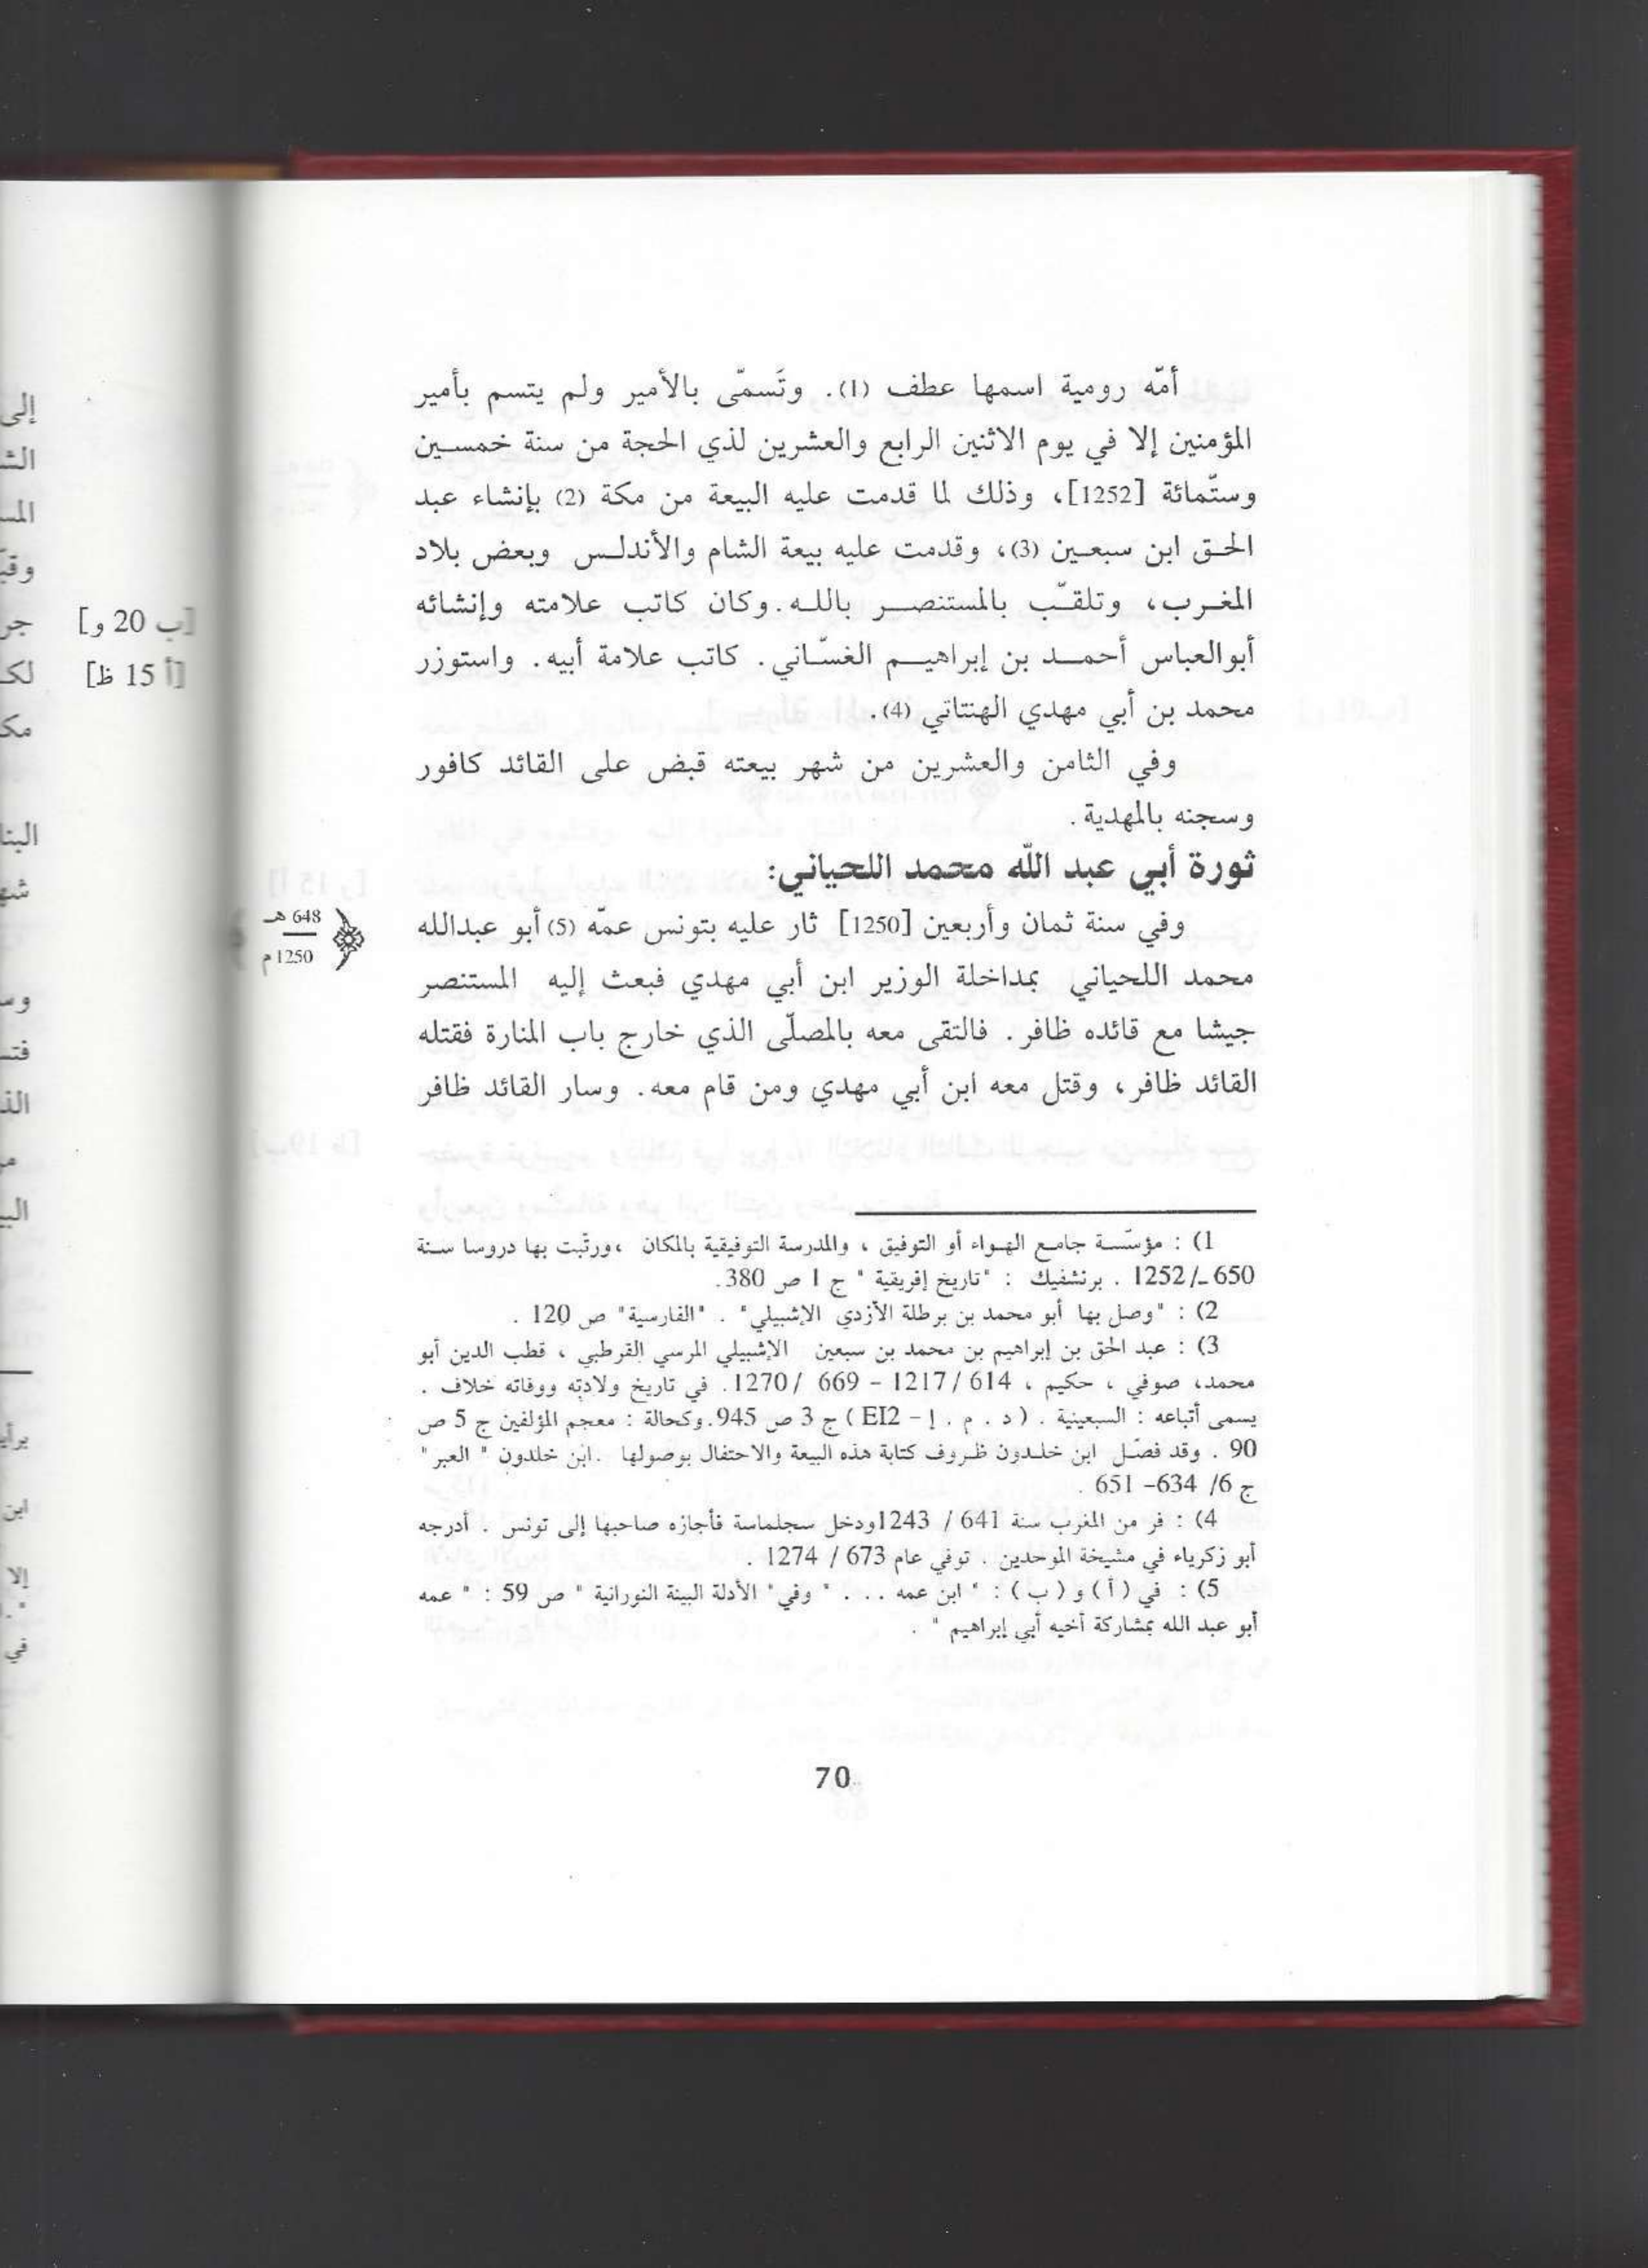 أمّه رومية اسمها عطف (1). وتَسمّى بالأمير ولم يتسم بأمير
المؤمنين إلا في يوم الاثنين الرابع والعشرين لذي الحجة من سنة خمسين
وستّمائة [1252]، وذلك لما قدمت عليه البيعة من مكة (2) بإنشاء عبد
الحق ابن سبعين (3)، وقدمت عليه بيعة الشام والأندلس وبعض بلاد
المغرب، وتلقّب بالمستنصر بالله. وكان كاتب علامته وإنشائه
أبوالعباس أحمد بن إبراهيم الغسّاني. كاتب علامة أبيه. واستوزر
محمد بن أبي مهدي الهنتاتي (4).
وفي الثامن والعشرين من شهر بيعته قبض على القائد كافور
وسجنه بالمهدية.
ثورة أبي عبد الله محمد اللحياني:
وفي سنة ثمان وأربعين [1250] ثار عليه بتونس عمّه (5) أبو عبدالله
محمد اللحياني بمداخلة الوزير ابن أبي مهدي فبعث إليه المستنصر
جيشا مع قائده ظافر. فالتقى معه بالمصلّى الذي خارج باب المنارة فقتله
القائد ظافر، وقتل معه ابن أبي مهدي ومن قام معه. وسار القائد ظافر
648 هـ
1250 م
1) : مؤسّسة جامع الهواء أو التوفيق ، والمدرسة التوفيقية بالمكان ،ورتّبت بها دروسا سنة
650 ـ/1252 . برنشفيك : "تاريخ إفريقية " ج 1 ص 380.
2) : "وصل بها أبو محمد بن برطلة الأزدي الإشبيلي" . "الفارسية" ص 120 .
3) : عبد الحق بن إبراهيم بن محمد بن سبعين الإشبيلي المرسي القرطبي ، قطب الدين أبو
محمد، صوفي ، حكيم ، 614 /1217 - 669 /1270. في تاريخ ولادته ووفاته خلاف .
يسمى أتباعه : السبعينية . ( د . م . إ - EI2 ) ج 3 ص 945. وكحالة : معجم المؤلفين ج 5 ص
90 . وقد فصّل ابن خلدون ظروف كتابة هذه البيعة والاحتفال بوصولها .ابن خلدون " العبر "
ج 6/ 634- 651 .
4) : فر من المغرب سنة 641 / 1243ودخل سجلماسة فأجازه صاحبها إلى تونس . أدرجه
أبو زكرياء في مشيخة الموحدين . توفي عام 673 / 1274 .
5) : في ( أ ) و ( ب ) : " ابن عمه . . . " وفي " الأدلة البينة النورانية " ص 59 : " عمه
أبو عبد الله بمشاركة أخيه أبي إبراهيم " .
70
[ب 20 و]
[أ 15 ظ]
إلى